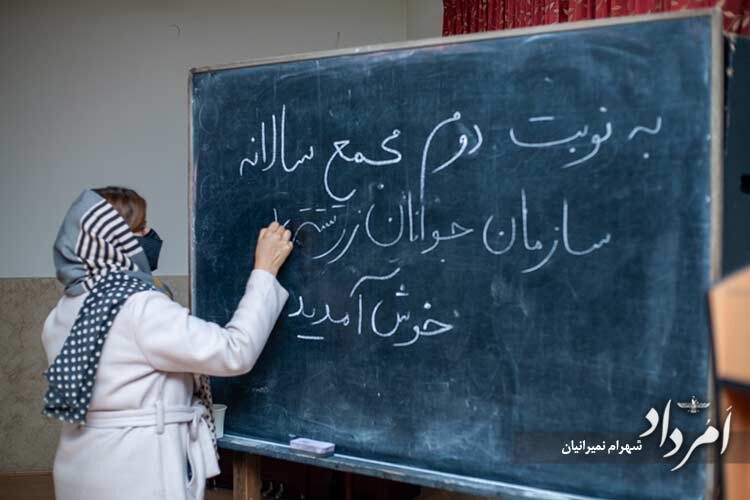 به نوبت دوم مجمع سالانه
سازمان جوانان زرتشتی
خوش آمدید
اَمرداد
شهرام نمیرانیان